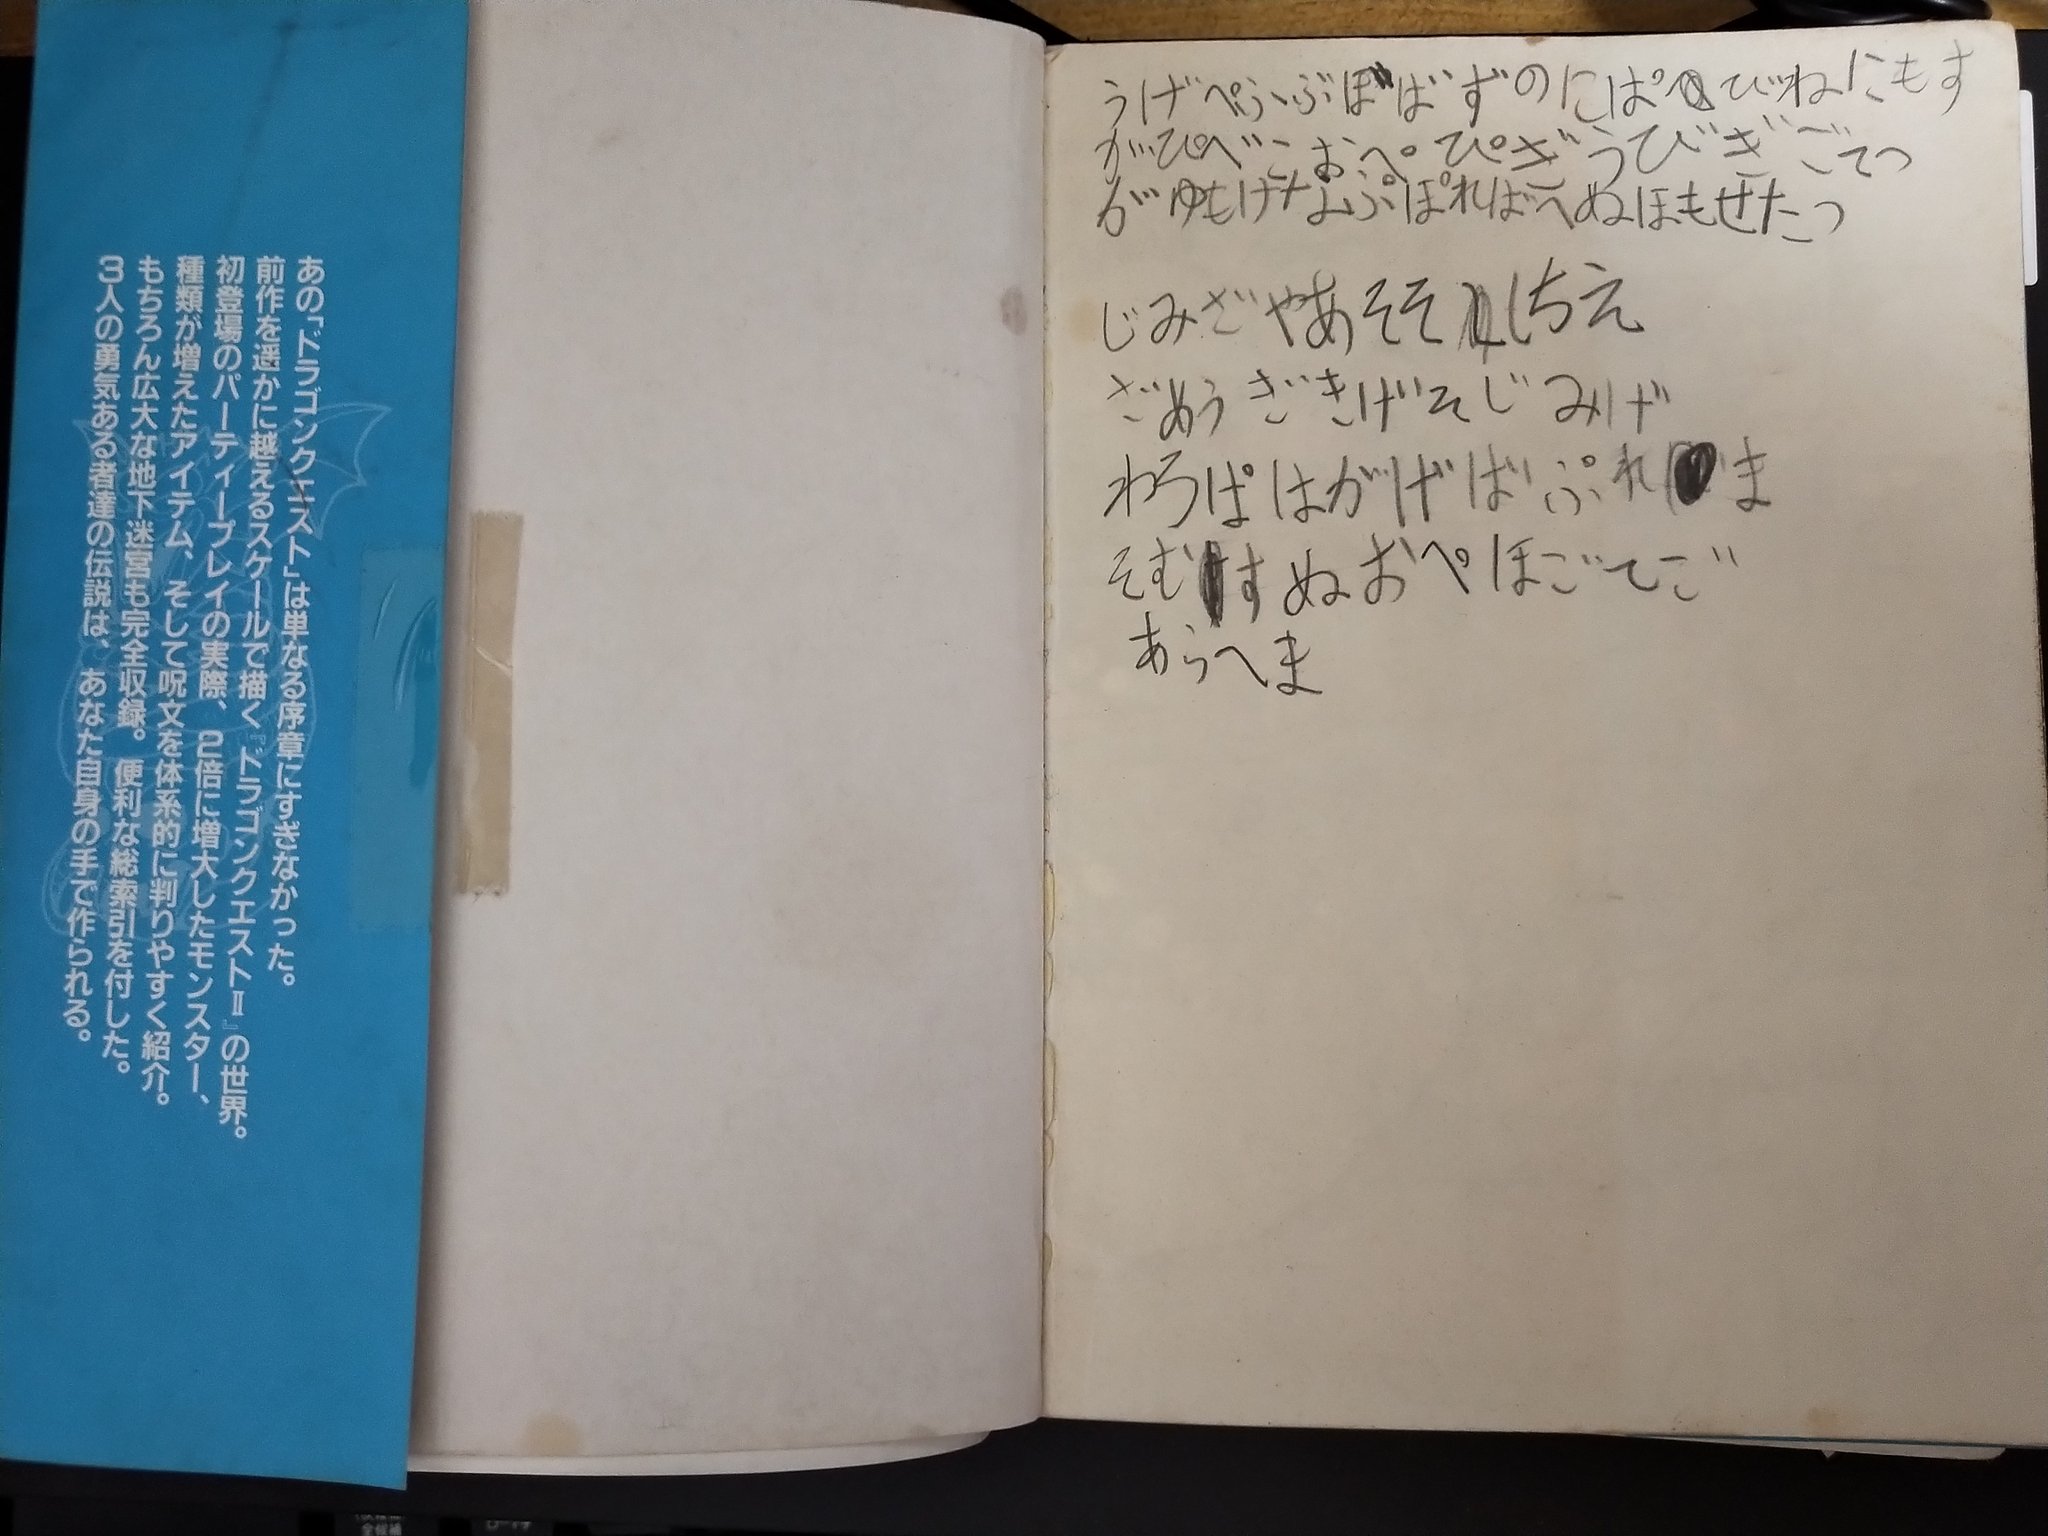 あの「ドラゴンクエスト」は単なる序章にすぎなかった。
前作を遥かに越えるスケールで描く『ドラゴンクエストⅡ』の世界。
初登場のパーティープレイの実際、2倍に増大したモンスター、
種類が増えたアイテム、そして呪文を体系的に判りやすく紹介。
もちろん広大な地下迷宮も完全収録。便利な総索引を付した。
3人の勇気ある者達の伝説は、あなた自身の手で作られる。
うげぺふぶぼばずのにぱびねにもす
がぴべこおぺぴぎうびぎごてつ
がゆもげなよぷぽればへぬほもせたつ
じみざやあそそしちえ
ざめうぎきげそじみげ
わろぱはがげばぷれま
そむすぬおぺほごてご
あらへま
全候補